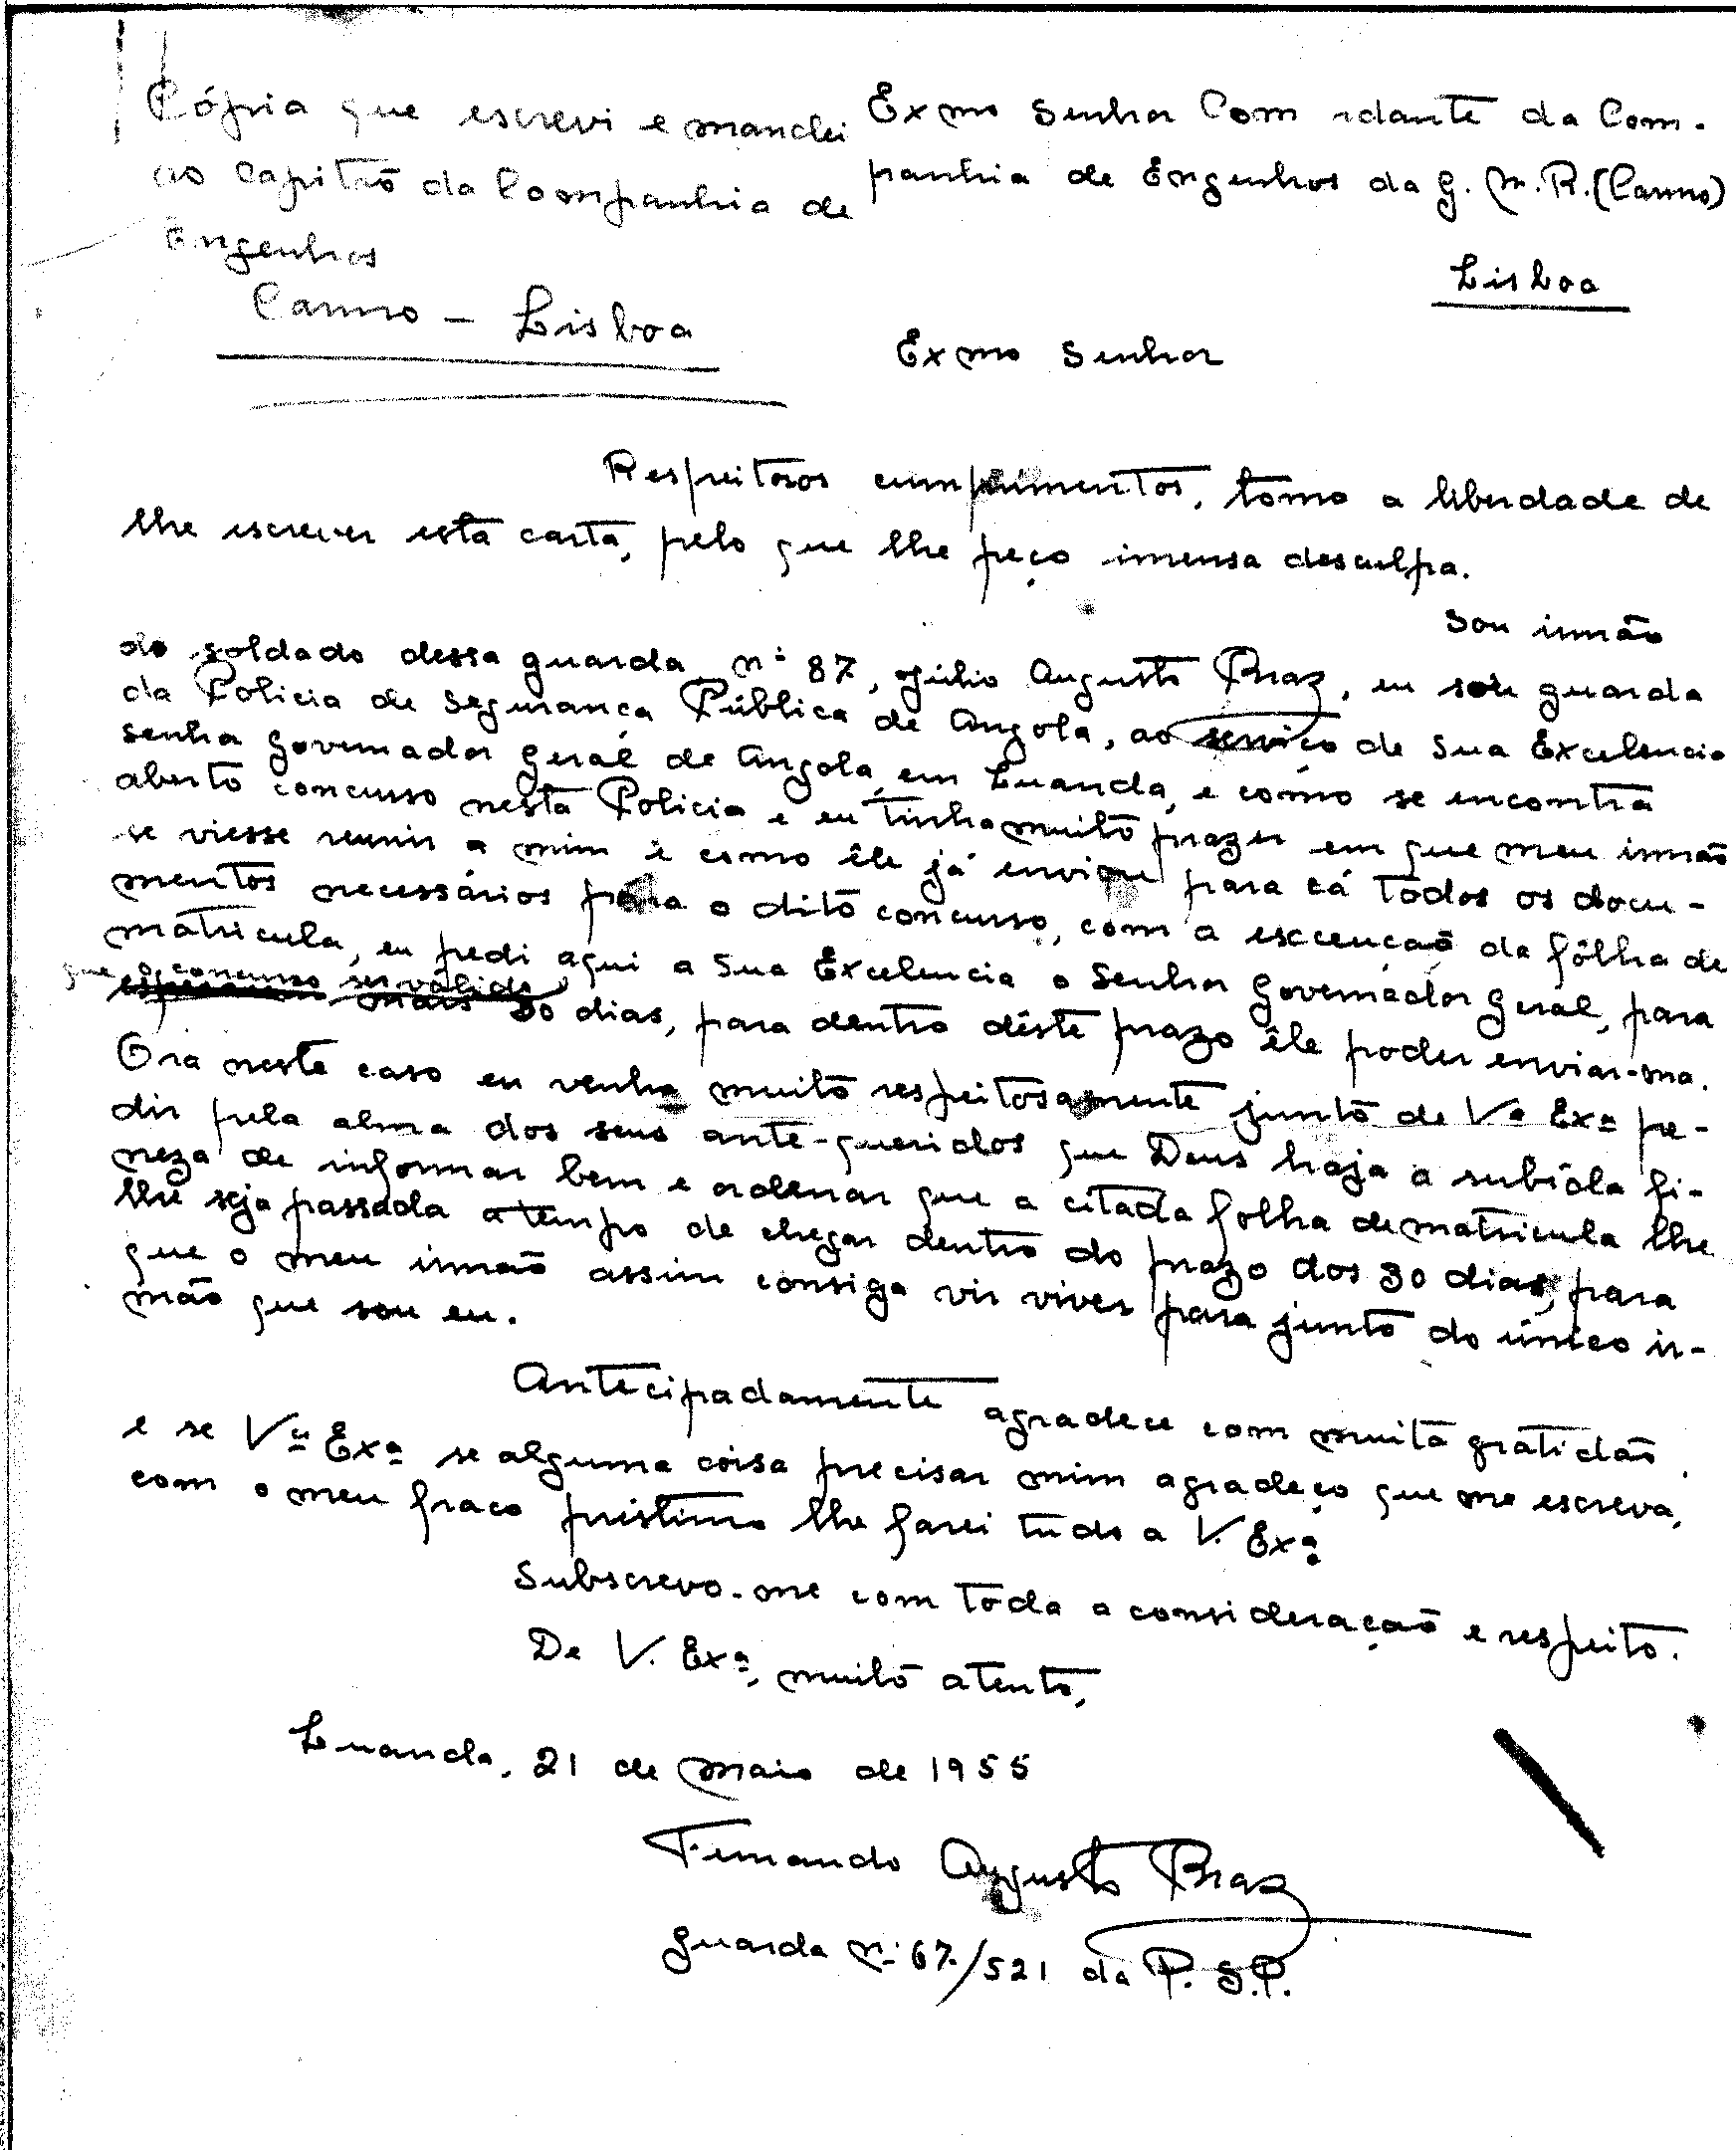 Cópia que escrevi e mandei
ao Capitão da Companhia de
Engenhos
Carmo - Lisboa
Exmo Senhor Com dante da Com-
panhia de Engenhos da G. N. R. (Carmo)
Lisboa
Exmo Senhor
Respeitosos cumprimentos, tomo a liberdade de
lhe escrever esta carta, pelo que lhe peço imensa desculpa.
Sou irmão
do soldado dessa guarda nº 87, Júlio Augusto Braz, eu sou guarda
da Policia de Segurança Pública de Angola, ao serviço de Sua Excelencia
Senhor Governador Geral de Angola, em Luanda, e como se encontra
aberto concurso nesta Policia e eu tinha muito prazer em que meu irmão
se viesse reunir a mim e como êle já enviou para cá todos os docu-
mentos necessários para o dito concurso, com a esceução da fôlha de
matricula, eu pedi aqui a Sua Excelencia o Senhor Governador Geral, para
que o concurso ser válido
mais 30 dias, para dentro dêste prazo êle poder enviar-ma.
Ora neste caso eu venho muito respeitosamente junto de Vª Exª pe-
dir pela alma dos seus ante-queridos que Deus haja a subida fi-
neza de informar bem e ordenar que a citada folha de matricula lhe
lhe seja passada a tempo de chegar dentro do prazo dos 30 dias, para
que o meu irmão assim consiga vir viver para junto do único ir-
mão que sou eu.
Antecipadamente agradece com muita gratidão
e se Vª Exª se alguma coisa precisar mim agradeço que me escreva,
com o meu fraco préstimo lhe farei tudo a V. Exª
Subscrevo-me com toda a consideração e respeito.
De V. Exª, muito atento,
Luanda, 21 de Maio de 1955
Fernando Augusto Braz
Guarda nº 67/521 da P. S.P.